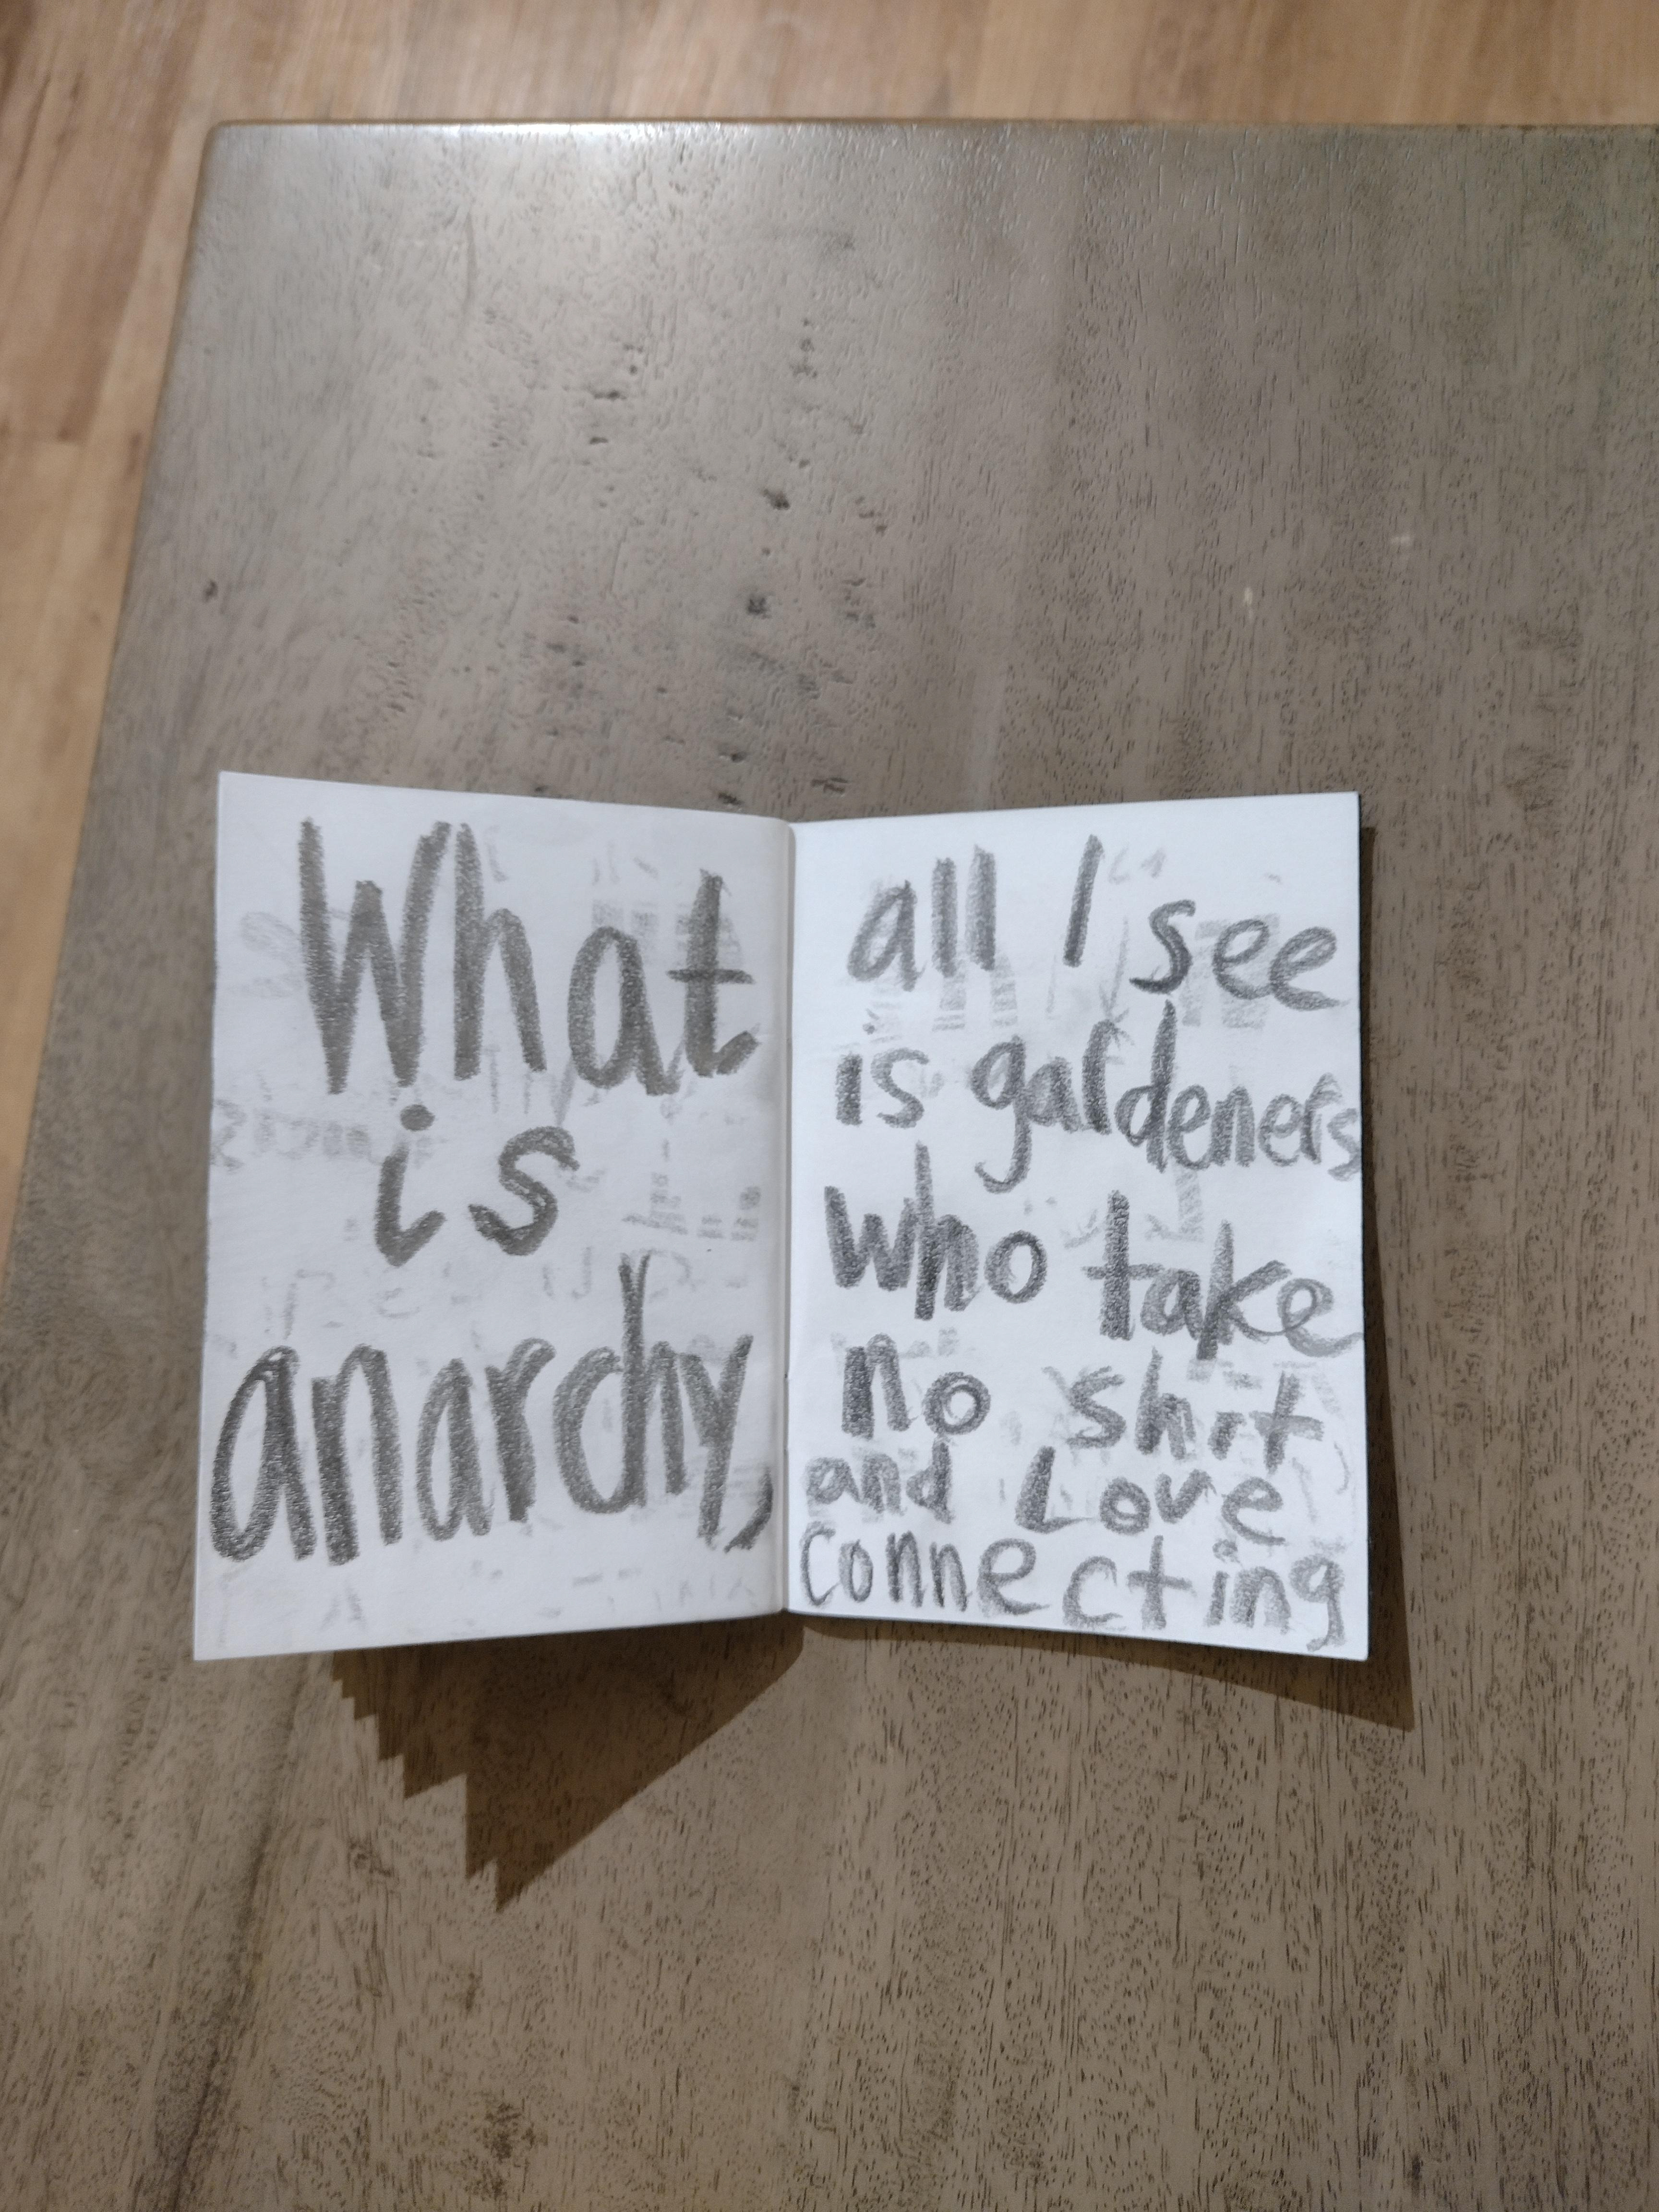 What
is
anarchy,
all I see
is gardeners
who take
no shit
and Love
connecting